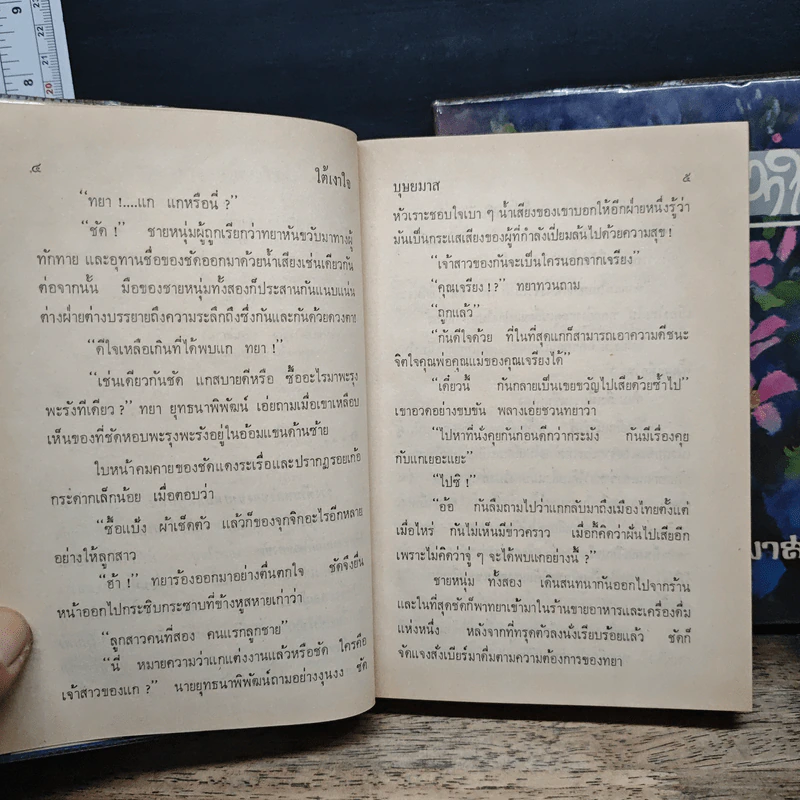 ๔
ใต้เงาใจ
“ทยา !....แก แกหรือนี่ ?”
“ชัด !” ชายหนุ่มผู้ถูกเรียกว่าทยาหันขวับมาทางผู้
ทักทาย และอุทานชื่อของชัดออกมาด้วยน้ำเสียงเช่นเดียวกัน
ต่อจากนั้น มือของชายหนุ่มทั้งสองก็ประสานกันแนบแน่น
ต่างฝ่ายต่างบรรยายถึงความระลึกถึงซึ่งกันและกันด้วยดวงตา
“ดีใจเหลือเกินที่ได้พบแก ทยา !”
“เช่นเดียวกันชัด แกสบายดีหรือ ซื้ออะไรมาพะรุง
พะรังทีเดียว ?” ทยา ยุทธนาพิพัฒน์ เอ่ยถามเมื่อเขาเหลือบ
เห็นของที่ชัดหอบพะรุงพะรังอยู่ในอ้อมแขนด้านซ้าย
ใบหน้าคมคายของชัดแดงระเรื่อและปรากฏรอยเก้อ
กระดากเล็กน้อย เมื่อตอบว่า
“ซื้อแป้ง ผ้าเช็ดตัว แล้วก็ของจุกจิกอะไรอีกหลาย
อย่างให้ลูกสาว
“ฮ้า !” ทยาร้องออกมาอย่างตื่นตกใจ ชัดจึงยื่น
หน้าออกไปกระซิบกระซาบที่ข้างหูสหายเก่าว่า
“ลูกสาวคนที่สอง คนแรกลูกชาย”
“นี่ หมายความว่าแกแต่งงานแล้วหรือชัด ใครคือ
เจ้าสาวของแก ?” นายยุทธนาพิพัฒน์ถามอย่างงุนงง ชัด
บุษยมาส
๕
หัวเราะชอบใจเบา ๆ น้ำเสียงของเขาบอกให้อีกฝ่ายหนึ่งรู้ว่า
มันเป็นกระแสเสียงของผู้ที่กำลังเปี่ยมล้นไปด้วยความสุข !
“เจ้าสาวของกันจะเป็นใครนอกจากเจรียง”
“คุณเจรียง !?” ทยาทวนถาม
“ถูกแล้ว”
“กันดีใจด้วย ที่ในที่สุดแกก็สามารถเอาความดีชนะ
จิตใจคุณพ่อคุณแม่ของคุณเจรียงได้”
“เดี๋ยวนี้ กันกลายเป็นเขยขวัญไปเสียด้วยซ้ำไป”
เขาอวดอย่างขบขัน พลางเอ่ยชวนทยาว่า
“ไปหาที่นั่งคุยกันก่อนดีกว่ากระมัง กันมีเรื่องคุย
กับแกเยอะแยะ”
“ไปซิ !”
“อ้อ กันลืมถามไปว่าแกกลับมาถึงเมืองไทยตั้งแต่
เมื่อไหร่ กันไม่เห็นมีข่าวคราว เมื่อกี้คิดว่าฝันไปเสียอีก
เพราะไม่คิดว่าจู่ ๆ จะได้พบแกอย่างนี้ ?”
ชายหนุ่ม ทั้งสอง เดินสนทนากันออกไปจากร้าน
และในที่สุดชัดก็พาทยาเข้ามาในร้านขายอาหารและเครื่องดื่ม
แห่งหนึ่ง หลังจากที่ทรุดตัวลงนั่งเรียบร้อยแล้ว ชัดก็
จัดแจงสั่งเบียร์มาดื่มตามความต้องการของทยา